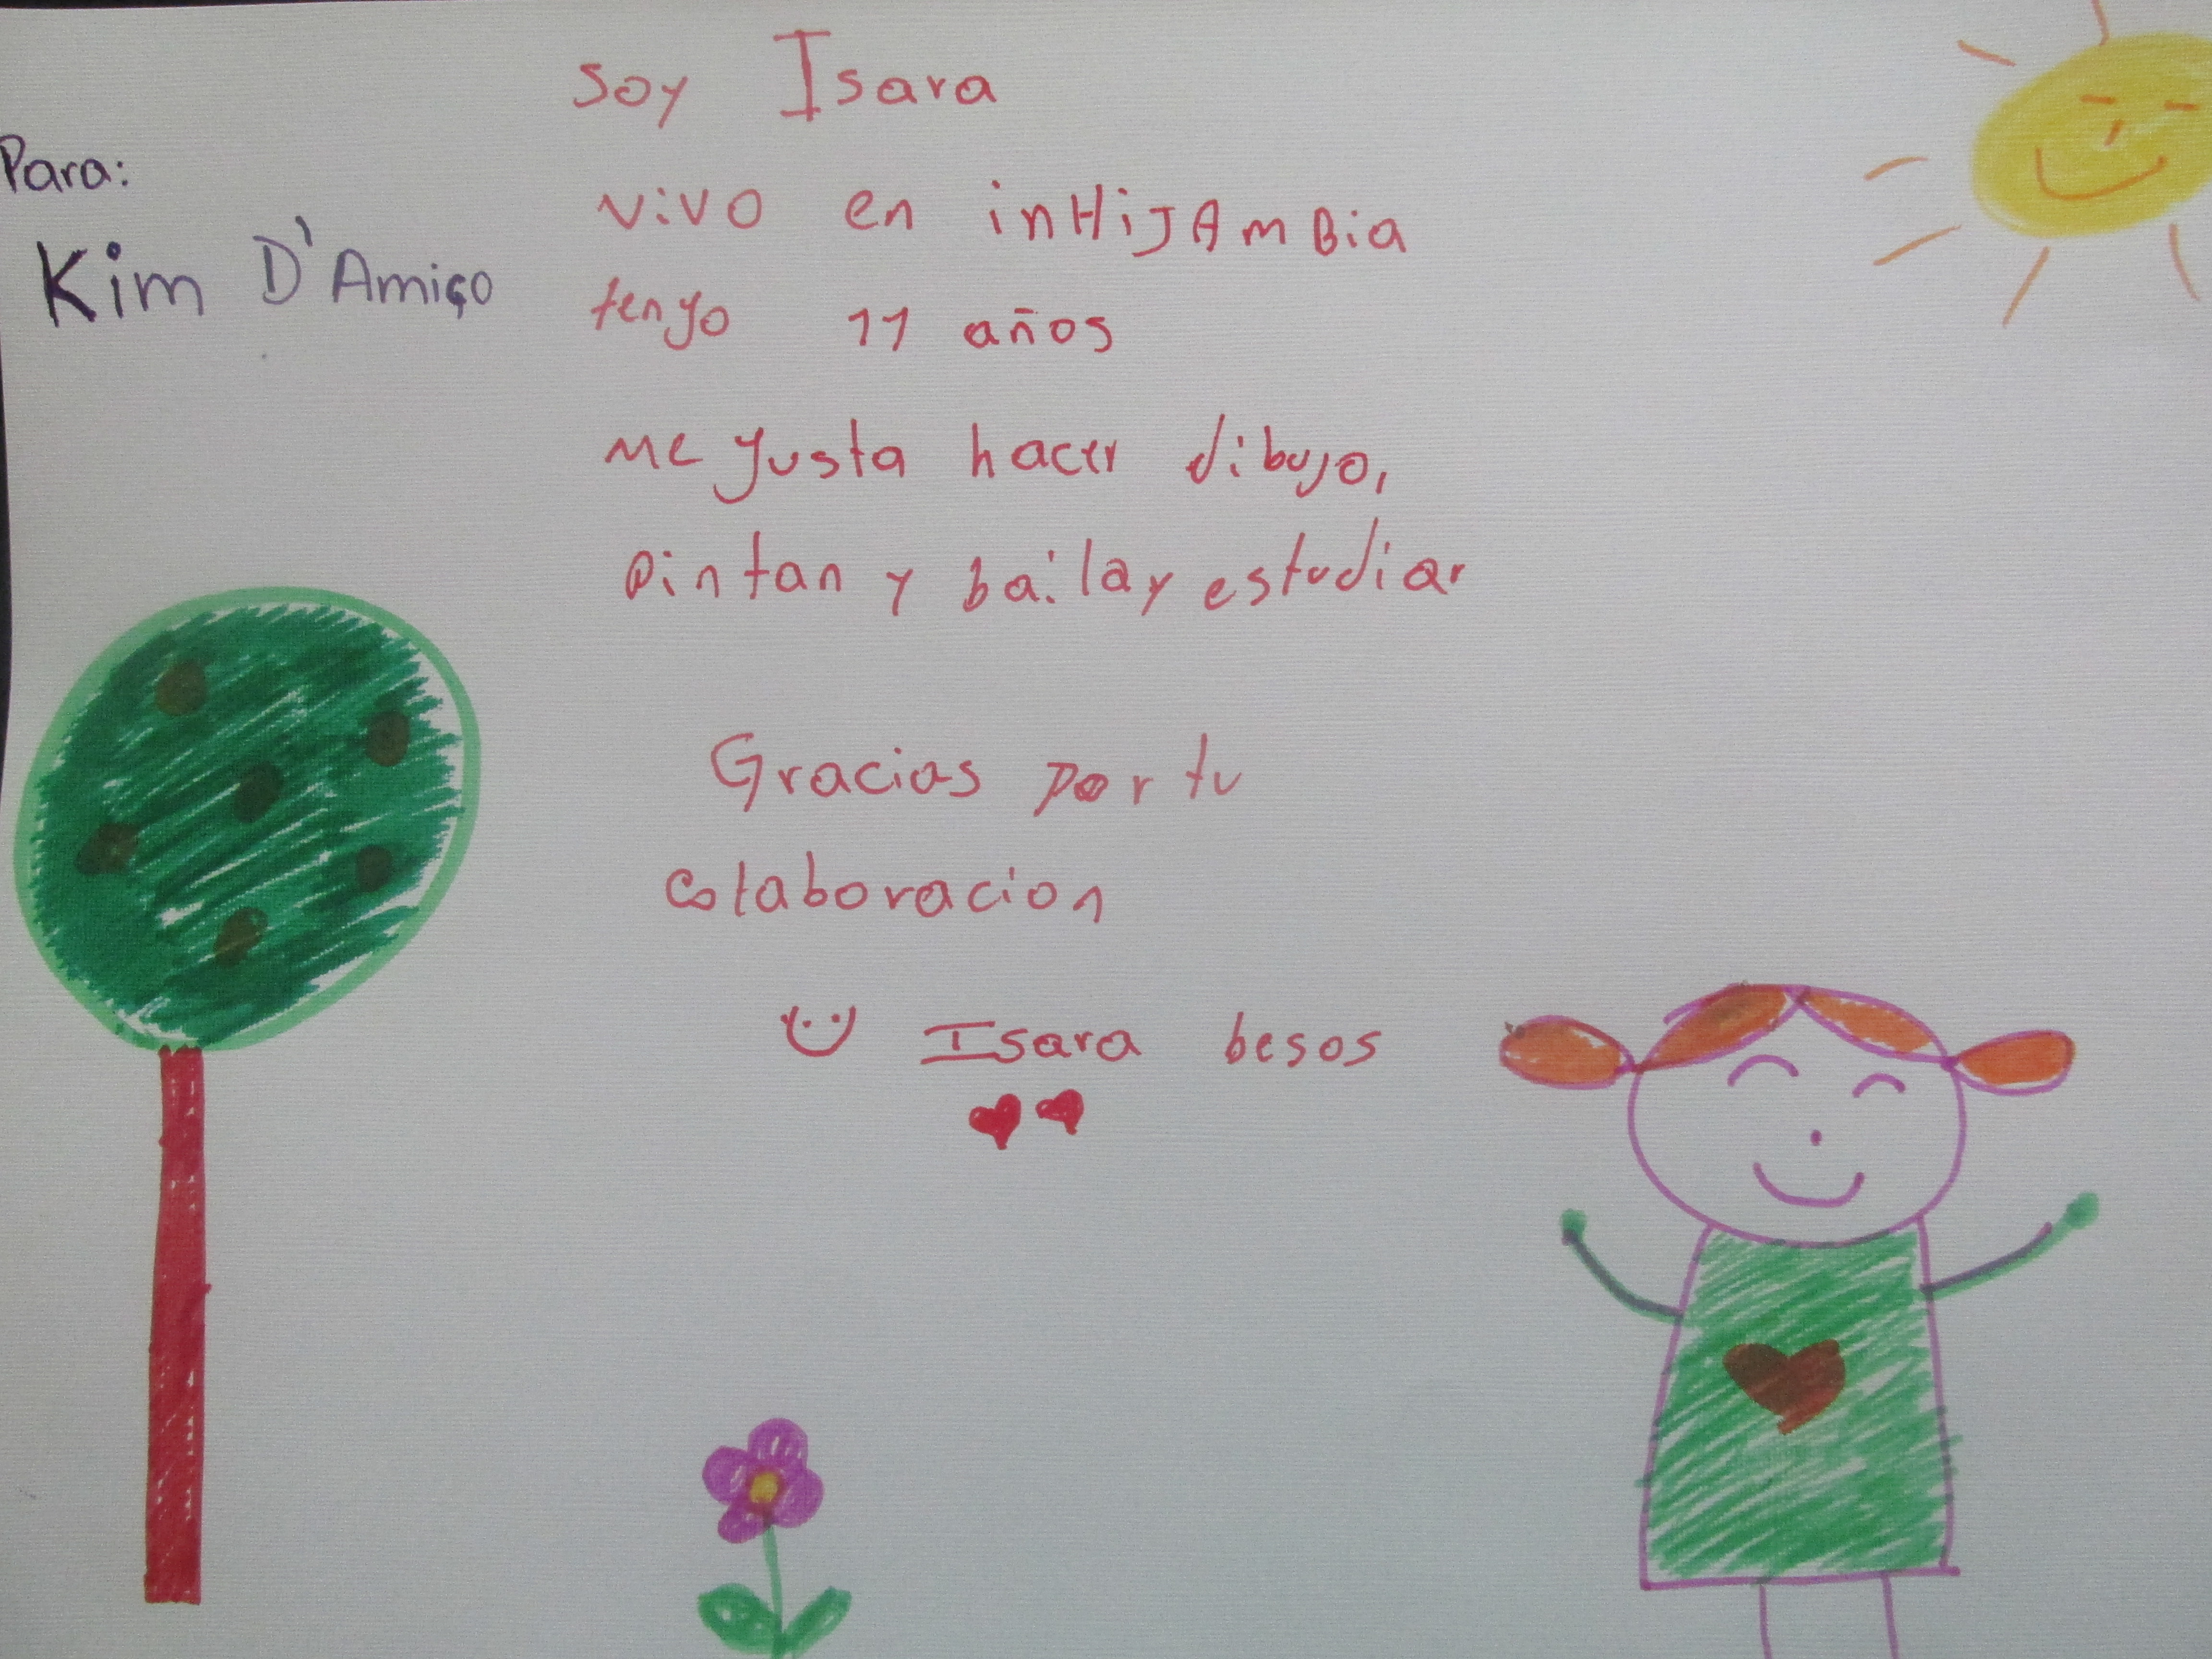 Para:
Kim D'Amigo
soy Isara
vivo en inHijAmBia
tengo 11 años
me gusta hacer dibujo,
pintan y bailay estudiar
Gracias por tu
colaboracion
Isara besos